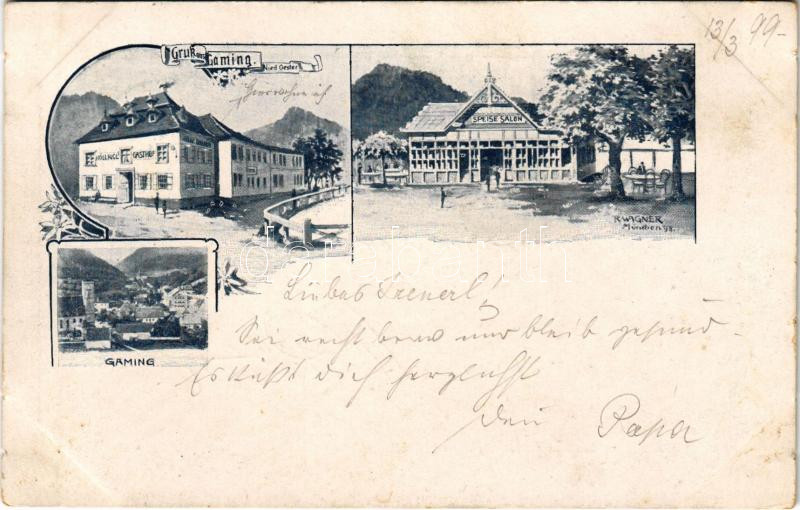 13/3 99-
Gruß aus Gaming.
Nied Oester.
Hier wohne ich
HÖLLRIGL GASTHOF
SPEISE SALON
R. WAGNER
München 98.
GAMING
Liebes !
Sei recht brav und bleib gesund-
Es küßt Dich herzlichst
Dein Papa